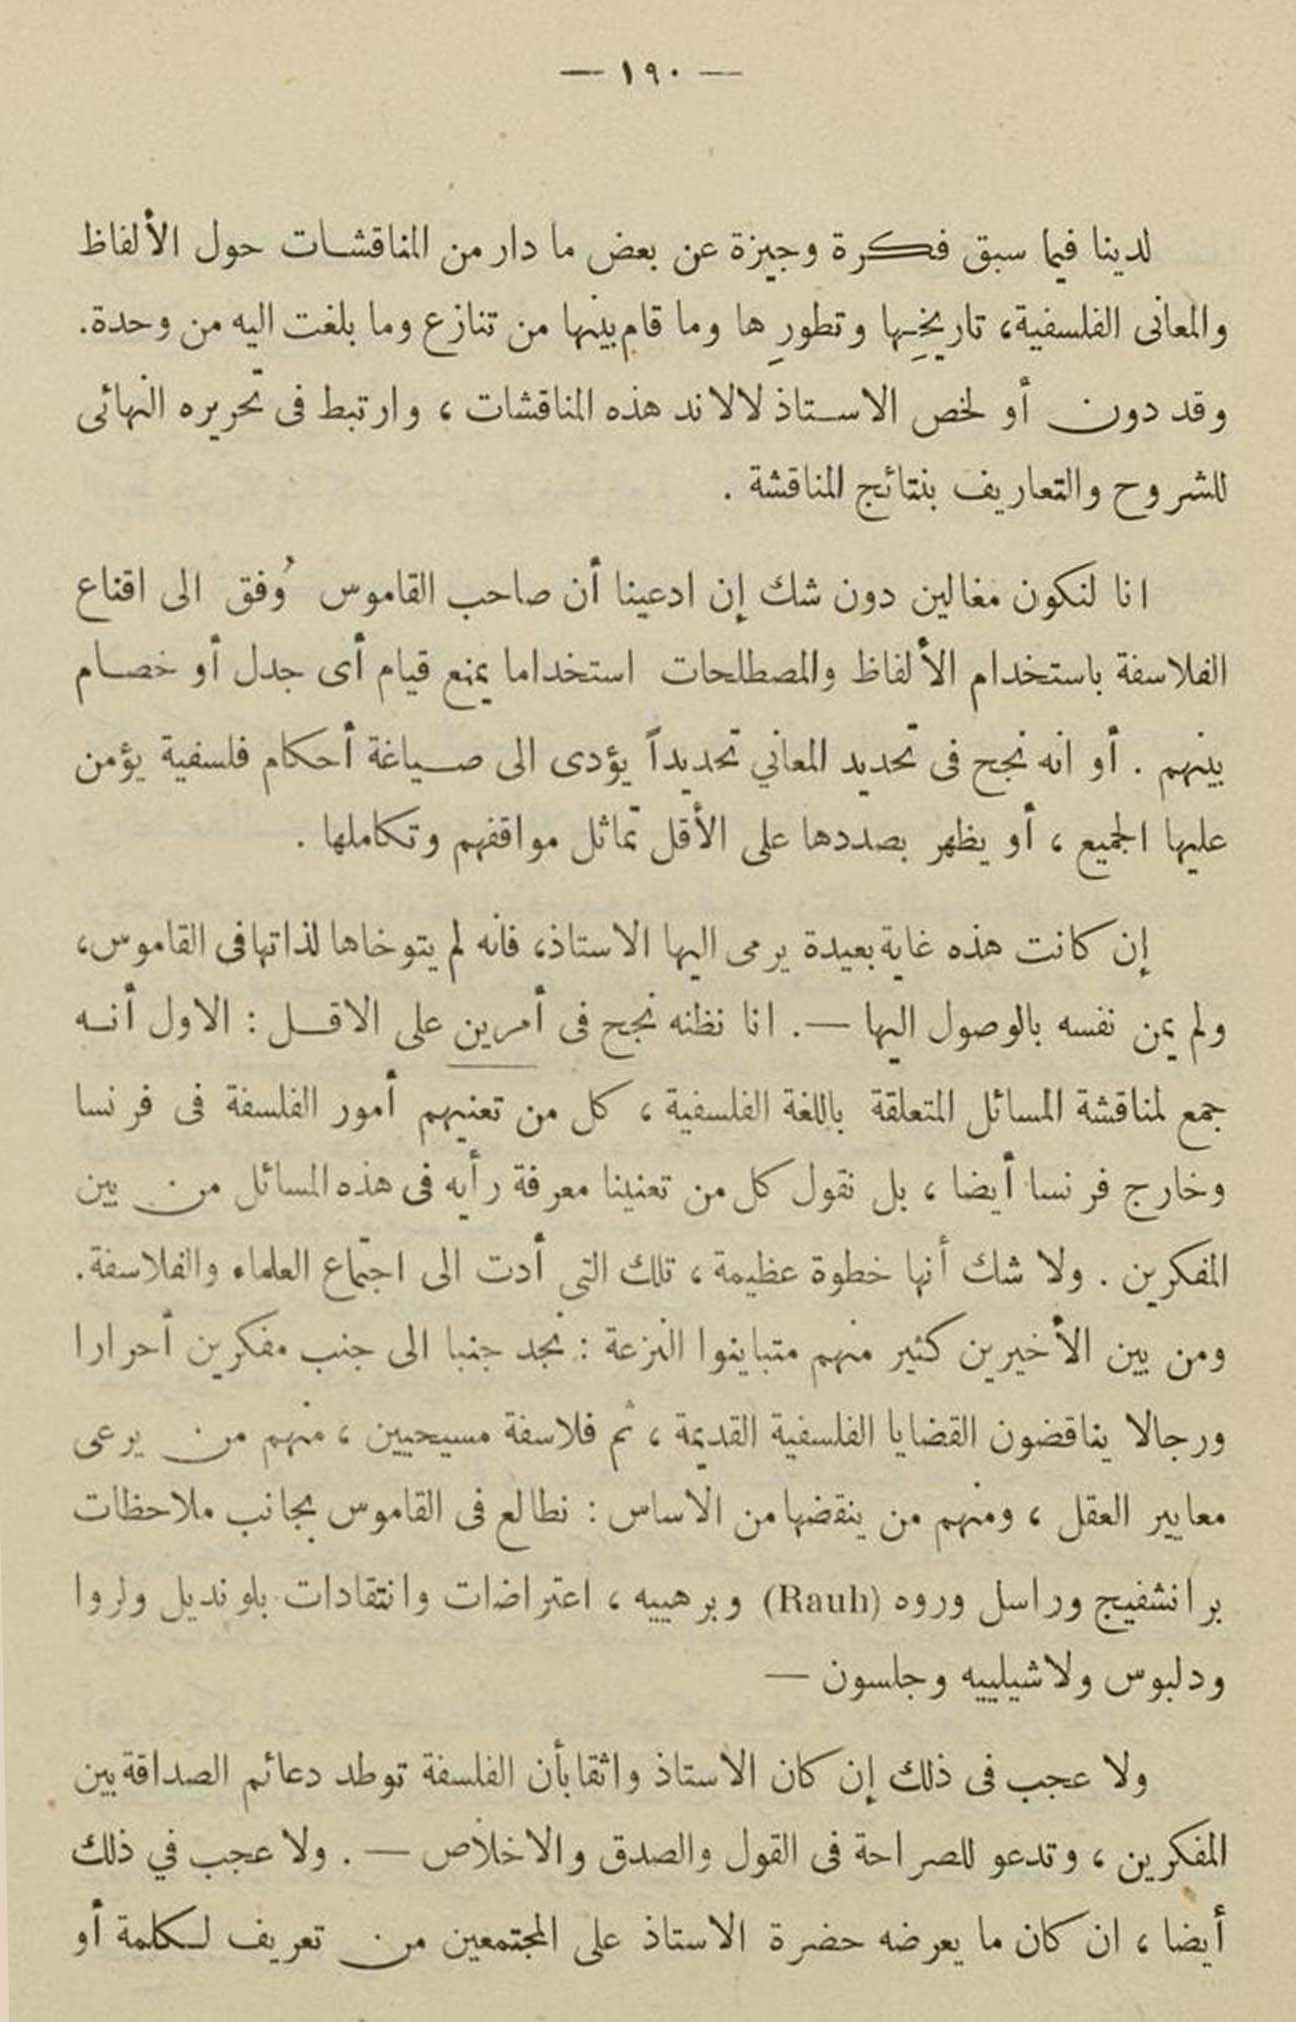 — ١٩٠ —
لدينا فيما سبق فكرة وجيزة عن بعض ما دار من المناقشات حول الألفاظ
والمعانى الفلسفية، تاريخِها وتطورِها وما قام بينها من تنازع وما بلغت اليه من وحدة.
وقد دون أو لخص الاستاذ لالاند هذه المناقشات ، وارتبط فى تحريره النهائى
للشروح والتعاريف بنتائج المناقشة .
انا لنكون مغالين دون شك إن ادعينا أن صاحب القاموس وُفق الى اقناع
الفلاسفة باستخدام الألفاظ والمصطلحات استخداما يمنع قيام أى جدل أو خصام
بينهم . أو انه نجح فى تحديد المعاني تحديداً يؤدى الى صياغة أحكام فلسفية يؤمن
عليها الجميع ، أو يظهر بصددها على الأقل تماثل مواقفهم وتكاملها .
إن كانت هذه غاية بعيدة يرمى اليها الاستاذ، فانه لم يتوخاها لذاتها فى القاموس،
ولم يمن نفسه بالوصول اليها — . انا نظنه نجح فى أمرين على الاقل : الاول أنه
جمع لمناقشة المسائل المتعلقة باللغة الفلسفية ، كل من تعنيهم أمور الفلسفة فى فرنسا
وخارج فرنسا أيضا ، بل نقول كل من تعنينا معرفة رأيه فى هذه المسائل من بين
المفكرين . ولا شك أنها خطوة عظيمة ، تلك التى أدت الى اجتماع العلماء والفلاسفة.
ومن بين الأخيرين كثير منهم متباينوا النزعة : نجد جنبا الى جنب مفكرين أحرارا
ورجالا يناقضون القضايا الفلسفية القديمة ، ثم فلاسفة مسيحيين ، منهم من يرعى
معايير العقل ، ومنهم من ينقضها من الاساس : نطالع فى القاموس بجانب ملاحظات
برانشفيج وراسل وروه (Rauh) وبرهييه ، اعتراضات وانتقادات بلونديل ولروا
ودلبوس ولاشيلييه وجلسون —
ولا عجب فى ذلك إن كان الاستاذ واثقا بأن الفلسفة توطد دعائم الصداقة بين
المفكرين ، وتدعو للصراحة فى القول والصدق والاخلاص — . ولا عجب في ذلك
أيضا ، ان كان ما يعرضه حضرة الاستاذ على المجتمعين من تعريف لكلمة أو